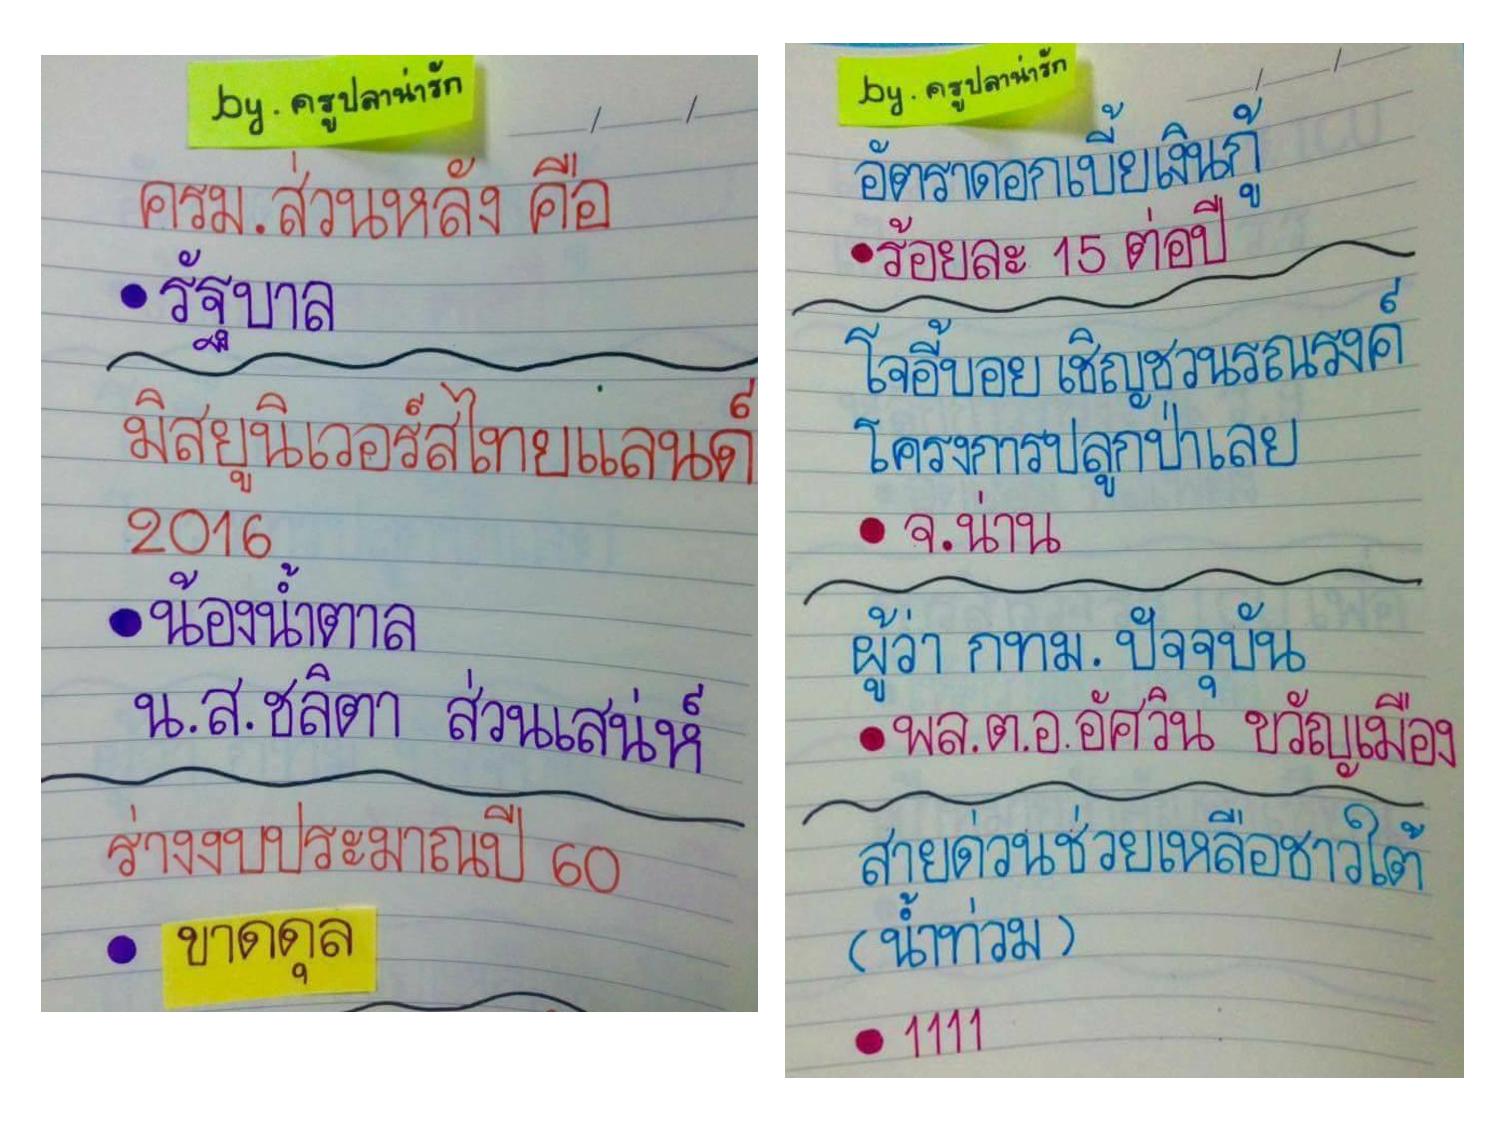 by. ครูปลาน่ารัก
ครม.ส่วนหลัง คือ
• รัฐบาล
มิสยูนิเวอร์สไทยแลนด์
2016
• น้องน้ำตาล
น.ส.ชลิตา ส่วนเสน่ห์
ร่างงบประมาณปี 60
• ขาดดุล
by. ครูปลาน่ารัก
อัตราดอกเบี้ยเงินกู้
• ร้อยละ 15 ต่อปี
โจอี้บอย เชิญชวนรณรงค์
โครงการปลูกป่าเลย
• จ.น่าน
ผู้ว่า กทม. ปัจจุบัน
• พล.ต.อ.อัศวิน ขวัญเมือง
สายด่วนช่วยเหลือชาวใต้
(น้ำท่วม)
• 1111